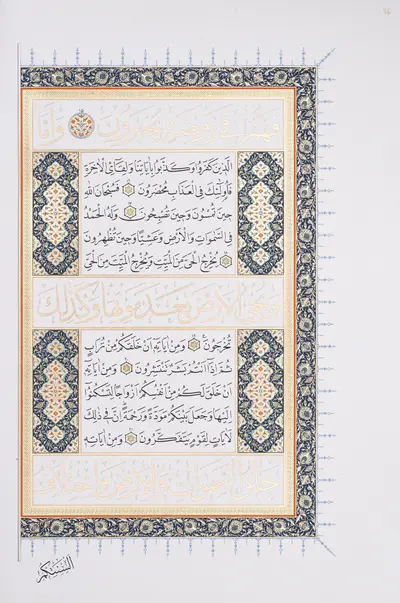 فهم في روضة يحبرون وأما
الذين كفروا وكذبوا باياتنا ولقائ الاخرة
فاولئك في العذاب محضرون فسبحان الله
حين تمسون وحين تصبحون وله الحمد
في السموات والارض وعشيا وحين تظهرون
يخرج الحي من الميت ويخرج الميت من الحي
ويحيي الارض بعد موتها وكذلك
تخرجون ومن اياته ان خلقكم من تراب
ثم اذا انتم بشر تنتشرون ومن اياته
ان خلق لكم من انفسكم ازواجا لتسكنوا
اليها وجعل بينكم مودة ورحمة ان في ذلك
لايات لقوم يتفكرون ومن اياته
خلق السموات والارض واختلاف
السنتكم